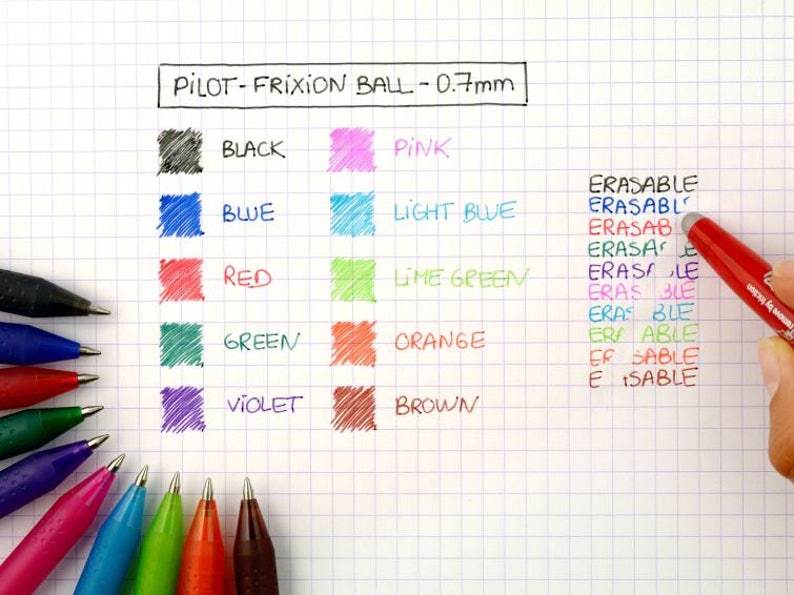 PiLOT - FRiXiON BALL - 0.7mm
BLACK
BLUE
RED
GREEN
ViOLET
PiNK
LiGHT BLUE
LiME GREEN
ORANGE
BROWN
ERASABLE
ERASABL
ERASAB
ERASA
ERASA LE
ERAS BLE
ERA BLE
ER ABLE
E SABLE
E SABLE
remove by friction